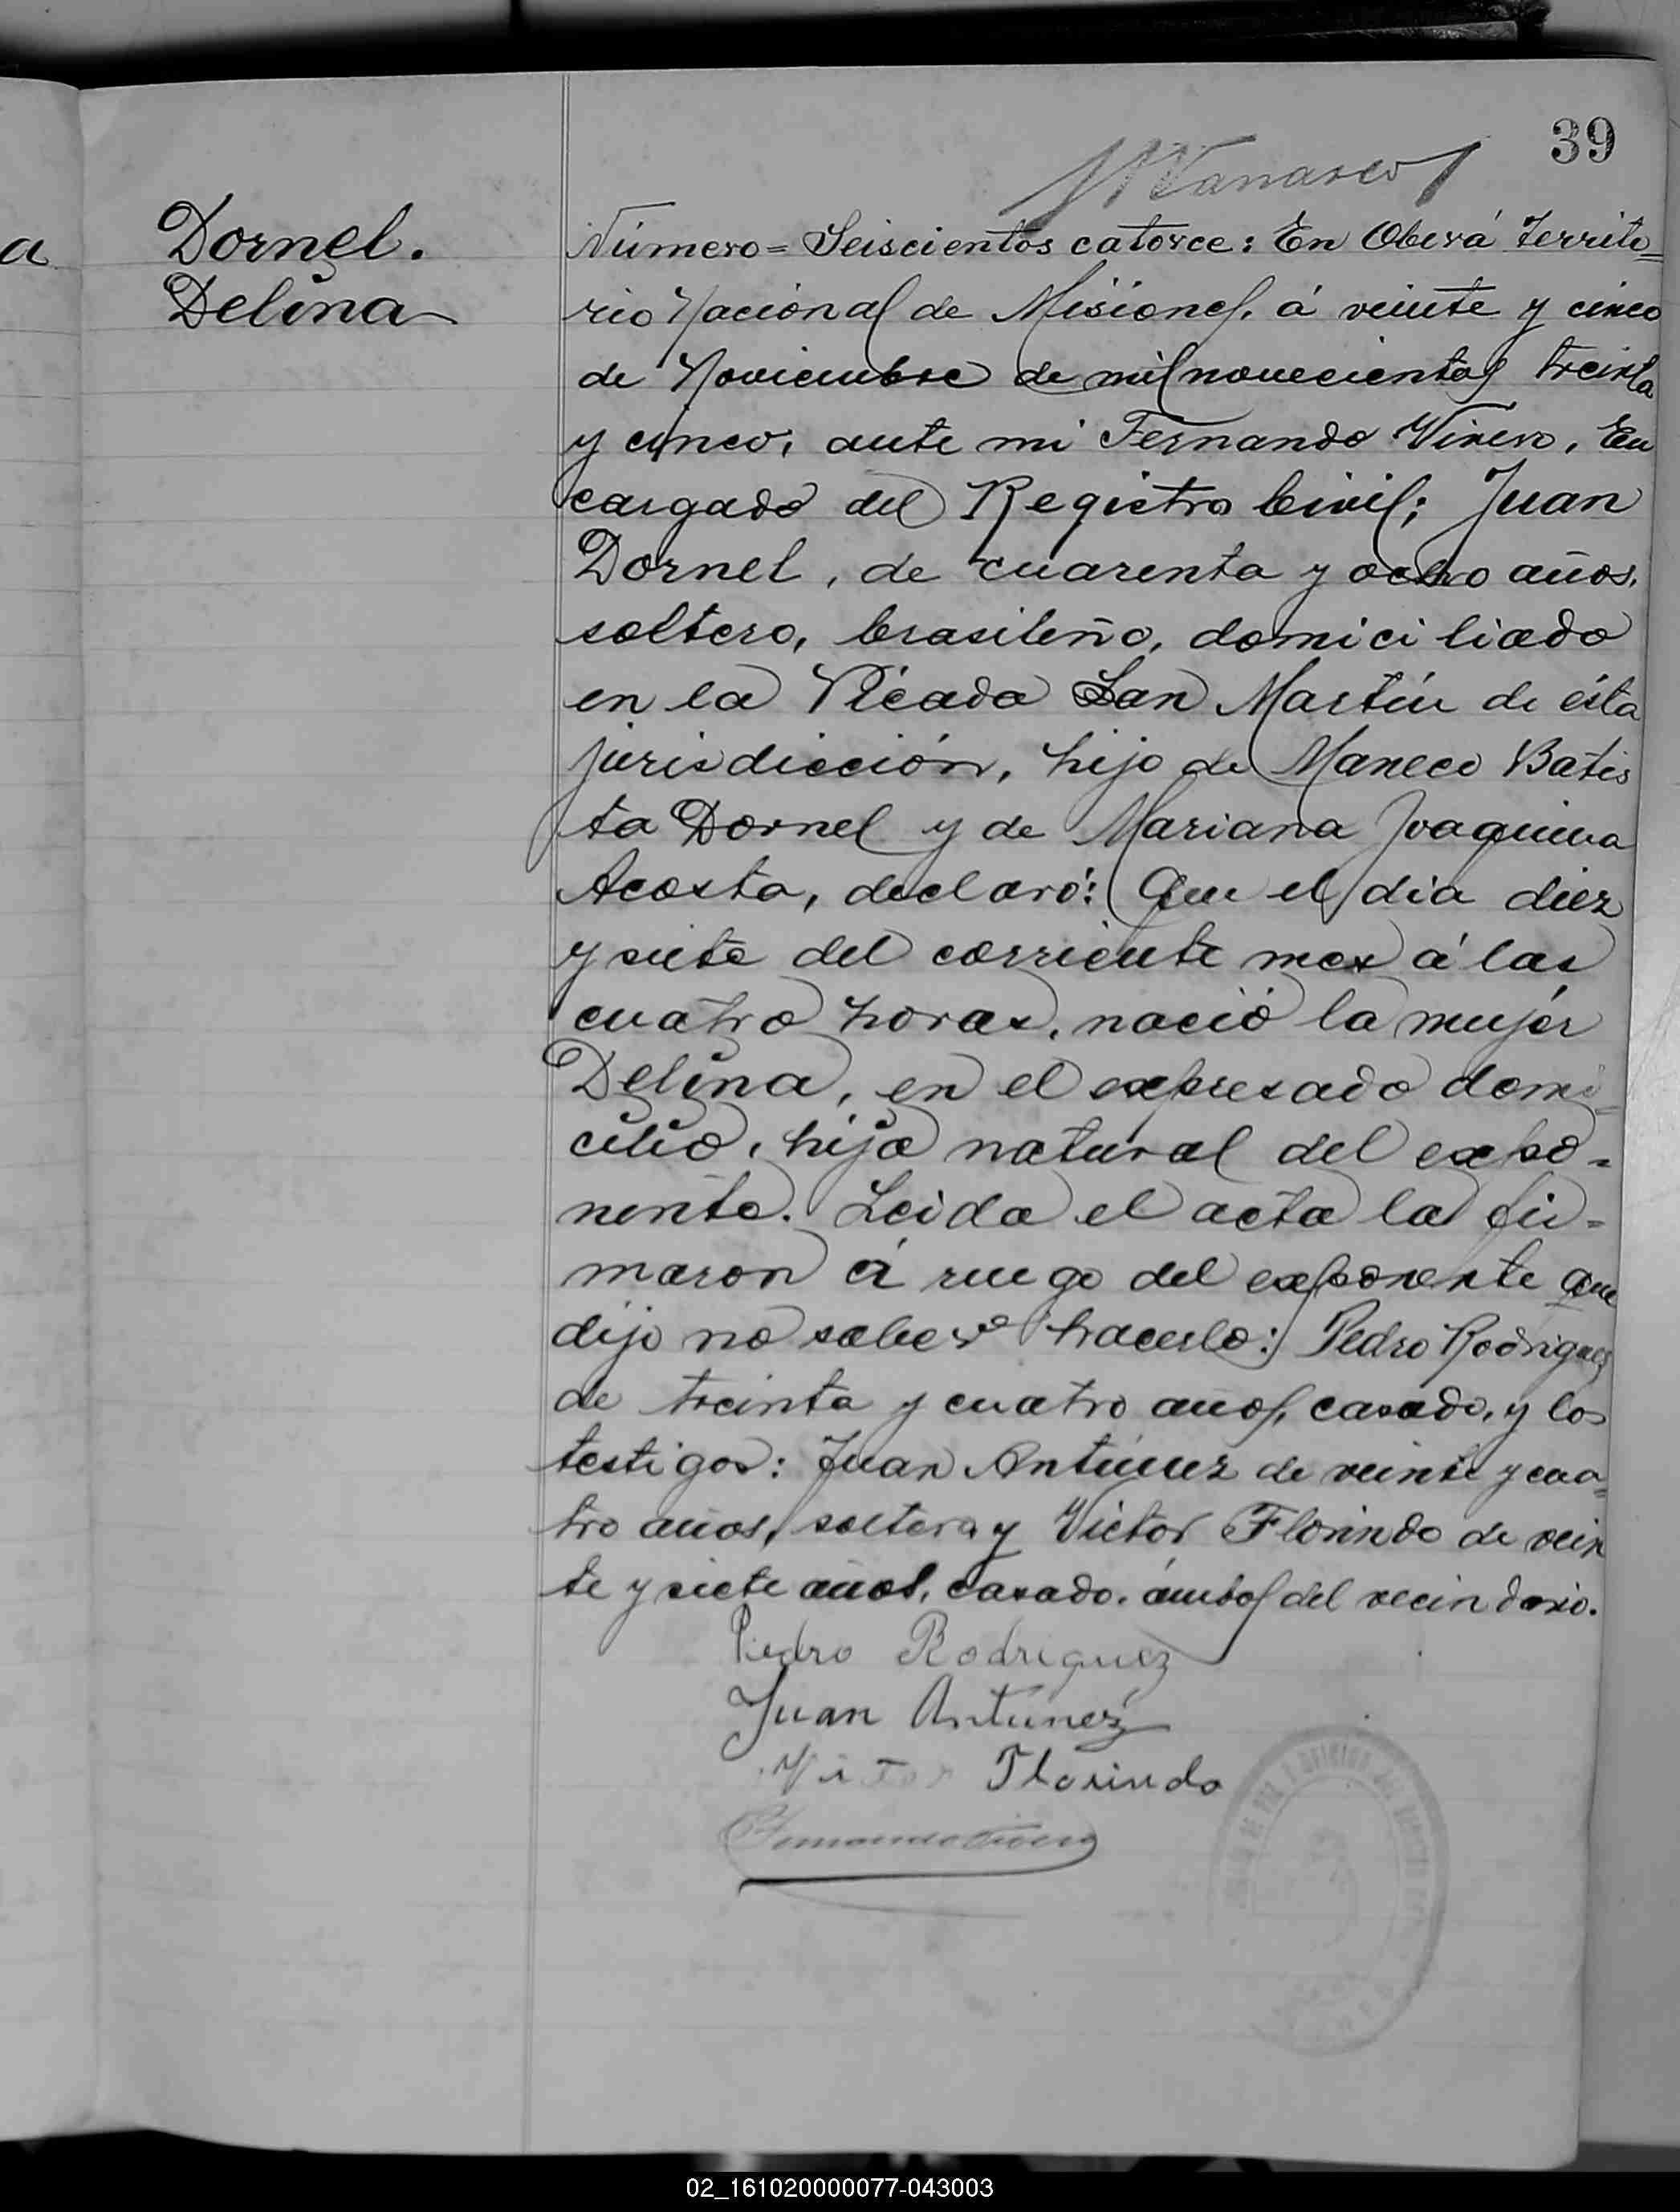 39
Dornel.
Delina
a
Número = Seiscientos catorce: En Oberá Territo=
rio Nacional de Misiones, á veinte y cinco
de Noviembre de mil novecientos treinta
y cinco, ante mi Fernando Vivero, En
cargado del Registro Civil; Juan
Dornel, de cuarenta y ocho años,
soltero, brasileño, domiciliado
en la Picada San Martín de ésta
jurisdicción, hijo de Maneco Batis
ta Dornel y de Mariana Joaquina
Acosta, declaró: Que el dia diez
y siete del corriente mes á las
cuatro horas, nació la mujer
Delina, en el expresado domi=
cilio, hija natural del expo=
nente. Leida el acta la fir=
maron á ruego del exponente que
dijo no saber hacerlo: Pedro Rodriguez
de treinta y cuatro años, casado, y los
testigos: Juan Antúnez de veinte y cua=
tro años, soltero y Victor Florindo de vein
te y siete años, casado, ámbos del vecindario.
Pedro Rodriguez
Juan Antúnez
Victor Florindo
02_161020000077-043003